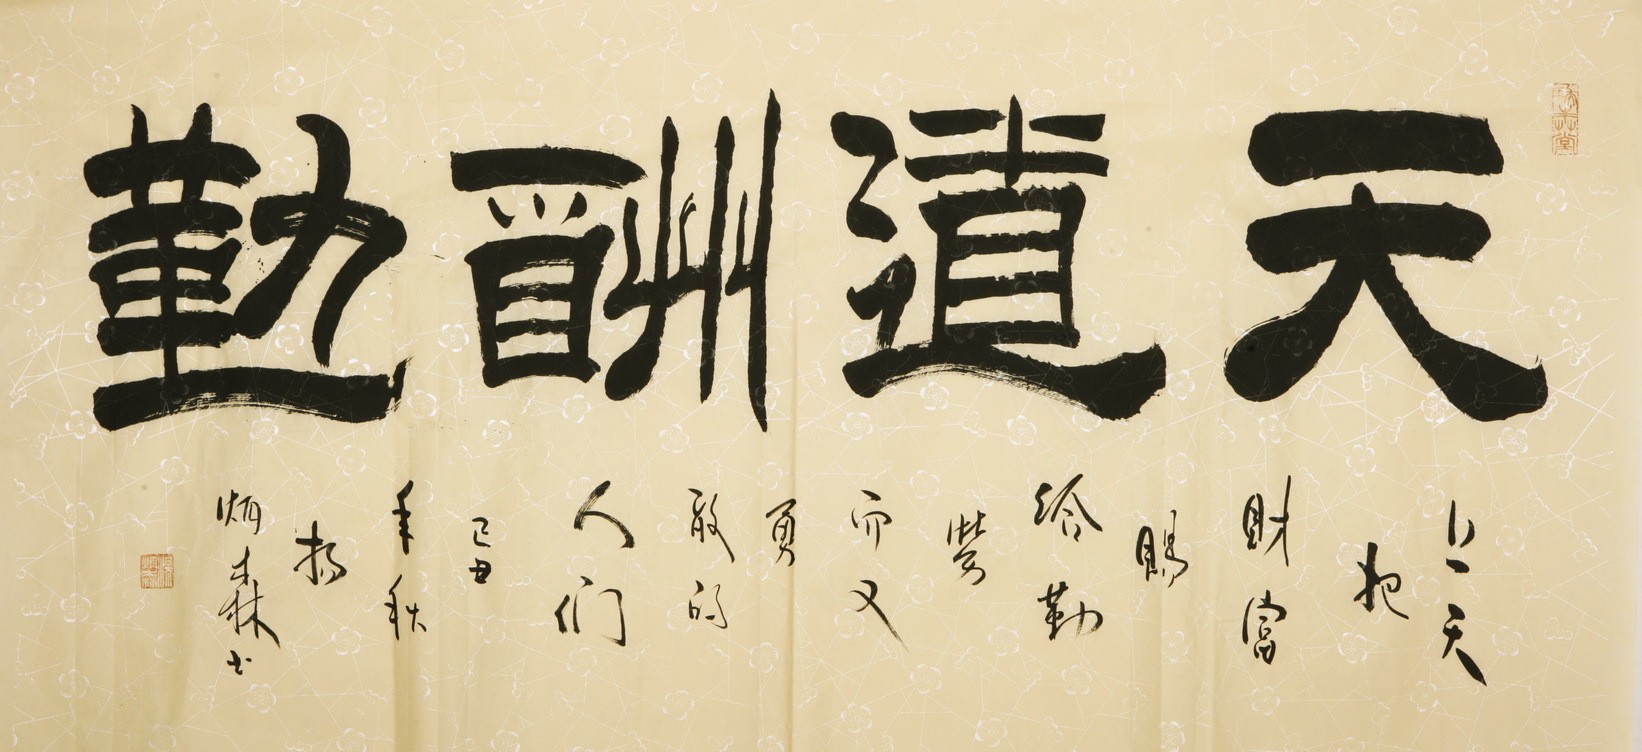 天道酬勤
上天
把
财富
赐
给勤
劳
而又
勇
敢的
人们
己丑
年秋
杨
炳森林书